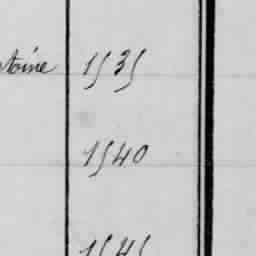 toine 1535
1540
1545